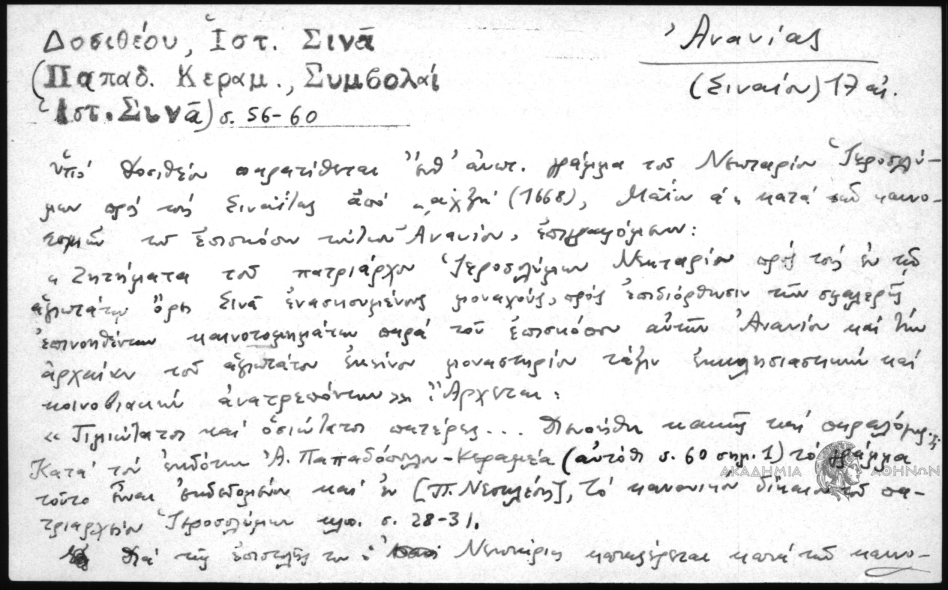 Δοσιθέου, Ἱστ. Σινᾶ
Ἀνανίας
(Παπαδ. Κεραμ., Συμβολαί
(Σιναίου) 17 αἰ.
Ἱστ. Σινᾶ) σ. 56-60
ὑπό Δοσιθέου παρατίθεται ἔνθ' ἀνωτ. γράμμα τοῦ Νεκταρίου Ἱεροσολύ-
μων πρός τούς Σιναΐτας ἀπό "͵αχξη' (1668), Μαΐου α'" κατά τῶν καινο-
τομιῶν τοῦ ἐπισκόπου τούτων Ἀνανίου, ἐπιγραφόμενον:
« Ζητήματα τοῦ πατριάρχου Ἱεροσολύμων Νεκταρίου πρός τούς ἐν τῷ
ἁγιωτάτῳ ὄρει Σινᾶ ἐνασκουμένους μοναχούς, πρός ἐπιδιόρθωσιν τῶν σφαλερῶς
ἐπινοηθέντων καινοτομημάτων παρά τοῦ ἐπισκόπου αὐτῶν Ἀνανίου καί τήν
ἀρχαίαν τοῦ ἁγιωτάτου ἐκείνου μοναστηρίου τάξιν ἐκκλησιαστικήν καί
κοινοβιακήν ἀνατρεπόντων». Ἄρχεται:
« Τιμιώτατοι καί ὁσιώτατοι πατέρες... κακῶς καί
Κατά τόν ἐκδότην Ἀ. Παπαδόπουλον-Κεραμέα (αὐτόθι σ. 60 σημ. 1) τό γράμμα
τοῦτο εἶναι ἐκδεδομένον καί ἐν [Π. Νεοκλέους], Τό κανονικόν δίκαιον τοῦ πα-
τριαρχείου Ἱεροσολύμων κλπ. σ. 28-31.
Διά τῆς ἐπιστολῆς του ὁ Νεκτάριος καταφέρεται κατά τῶν καινο-
ΑΚΑΔΗΜΙΑ ΑΘΗΝΩΝ